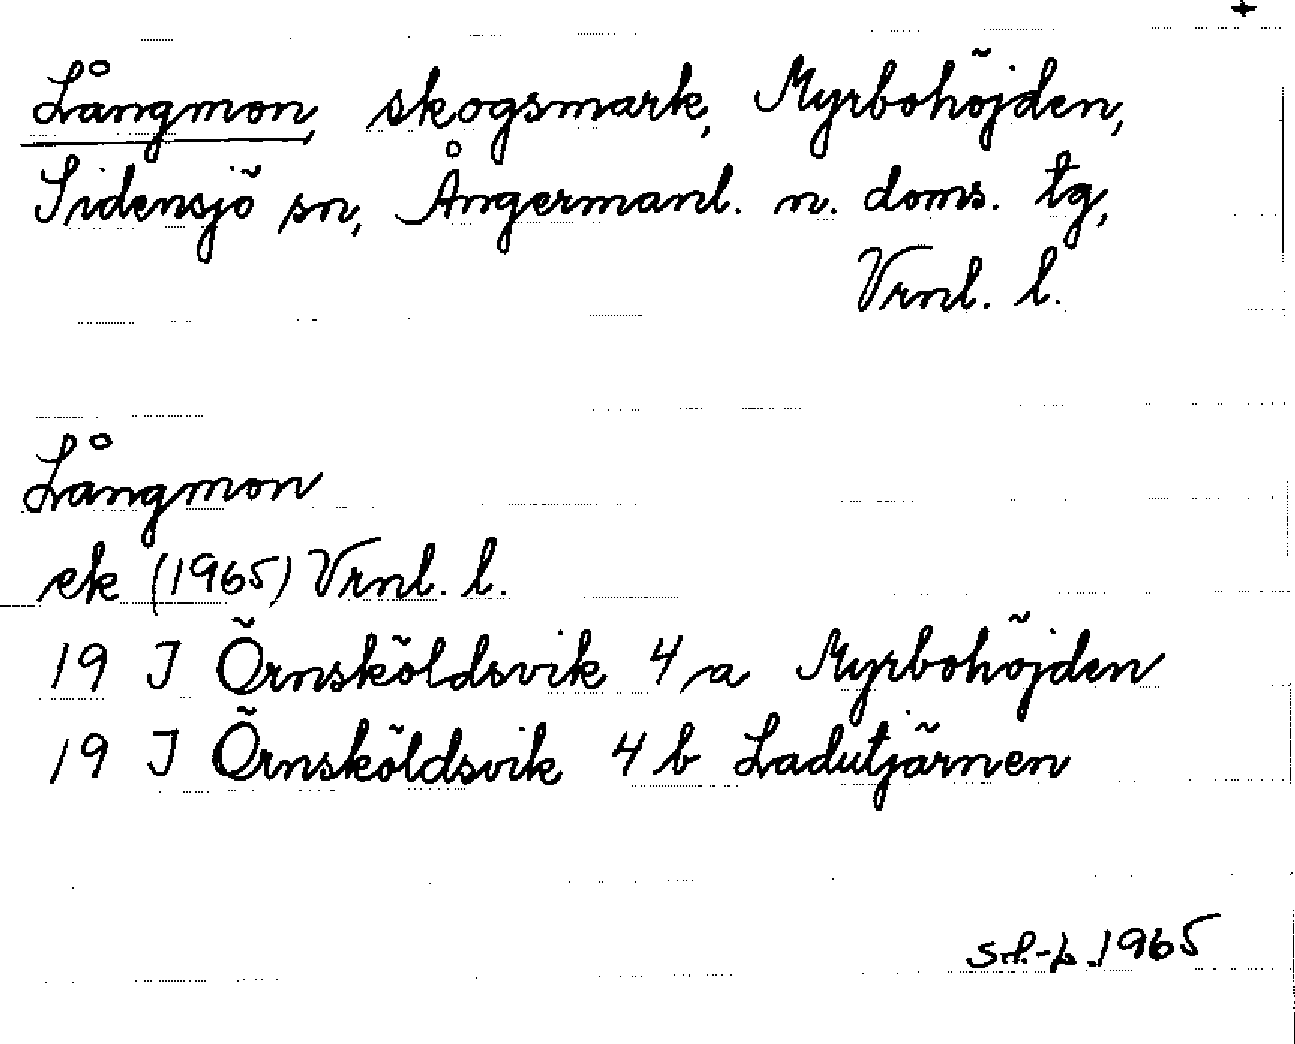 Långmon, skogsmark, Myrbohöjden,
Sidensjö sn, Ångermanl. n. doms. tg,
Vrnl. l.
Långmon
ek (1965) Vrnl. l.
19 J Örnsköldsvik 4 a Myrbohöjden
19 J Örnsköldsvik 4 b Ladutjärnen
1965